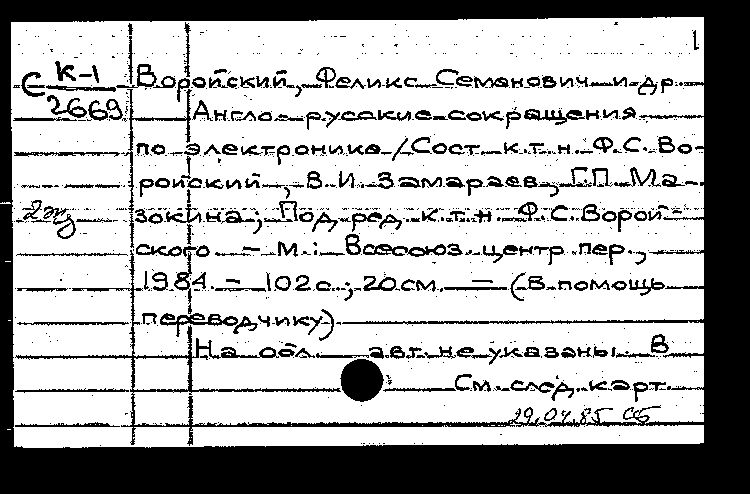 1
С К-1 Воройский, Феликс Семенович и др.
2669 Англо-русские сокращения
по электронике / Сост. к.т.н. Ф.С. Во-
ройский, В.И. Замараев, Г.П. Ма-
2экз зокина; Под ред. к.т.н. Ф.С. Ворой-
ского. – М.: Всесоюз. центр пер.,
1984. – 102с.; 20см. – (В помощь
переводчику)
На обл. авт. не указаны. В
См. след. карт.
29.04.85